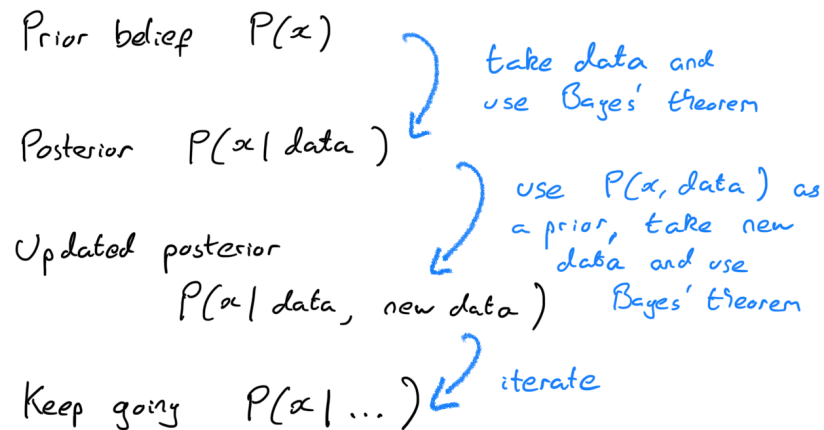 Prior belief P(x)
take data and
use Bayes' theorem
Posterior P(x| data )
use P(x, data ) as
a prior, take new
data and use
Bayes' theorem
Updated posterior
P(x| data, new data )
iterate
Keep going P(x| ...)